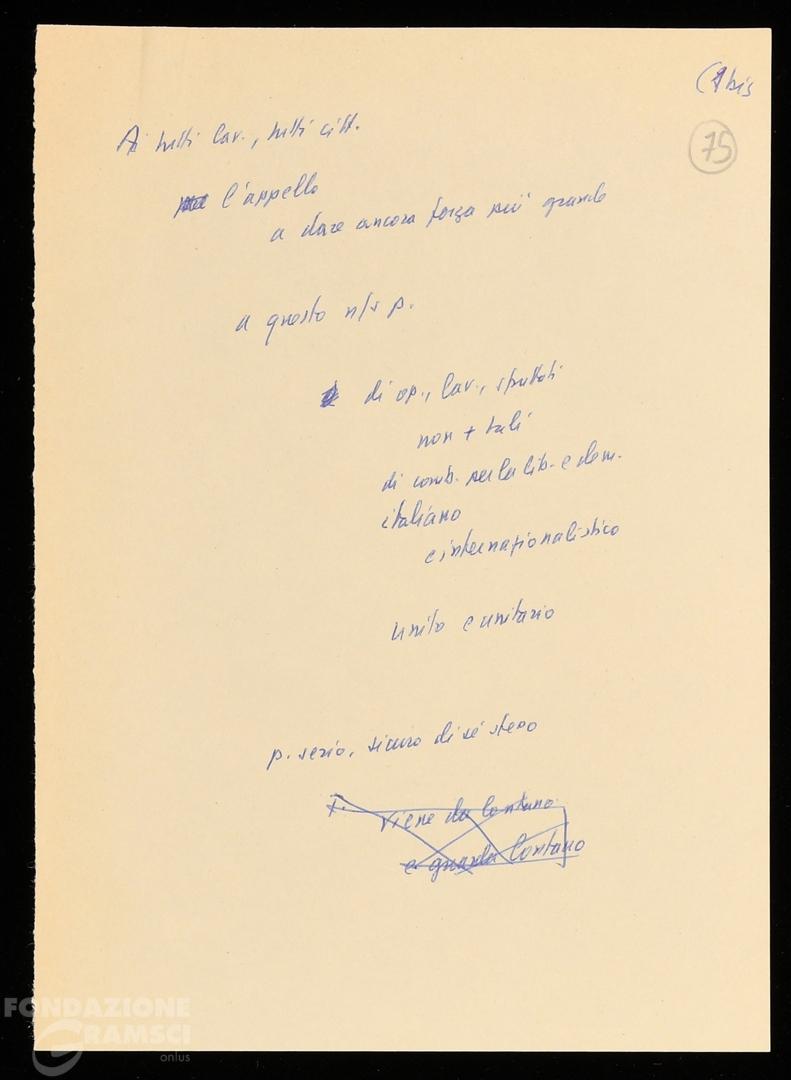 (1bis
75
Ai tutti lav., tutti citt.
l'appello
a dare ancora forza più grande
a questo n/s p.
di op., lav., sfruttati
non + tali
di comb. per la lib. e dem.
italiano
e internazionalistico
unito e unitario
p. serio, sicuro di sé stesso
viene da lontano
e guarda lontano
FONDAZIONE
GRAMSCI
onlus